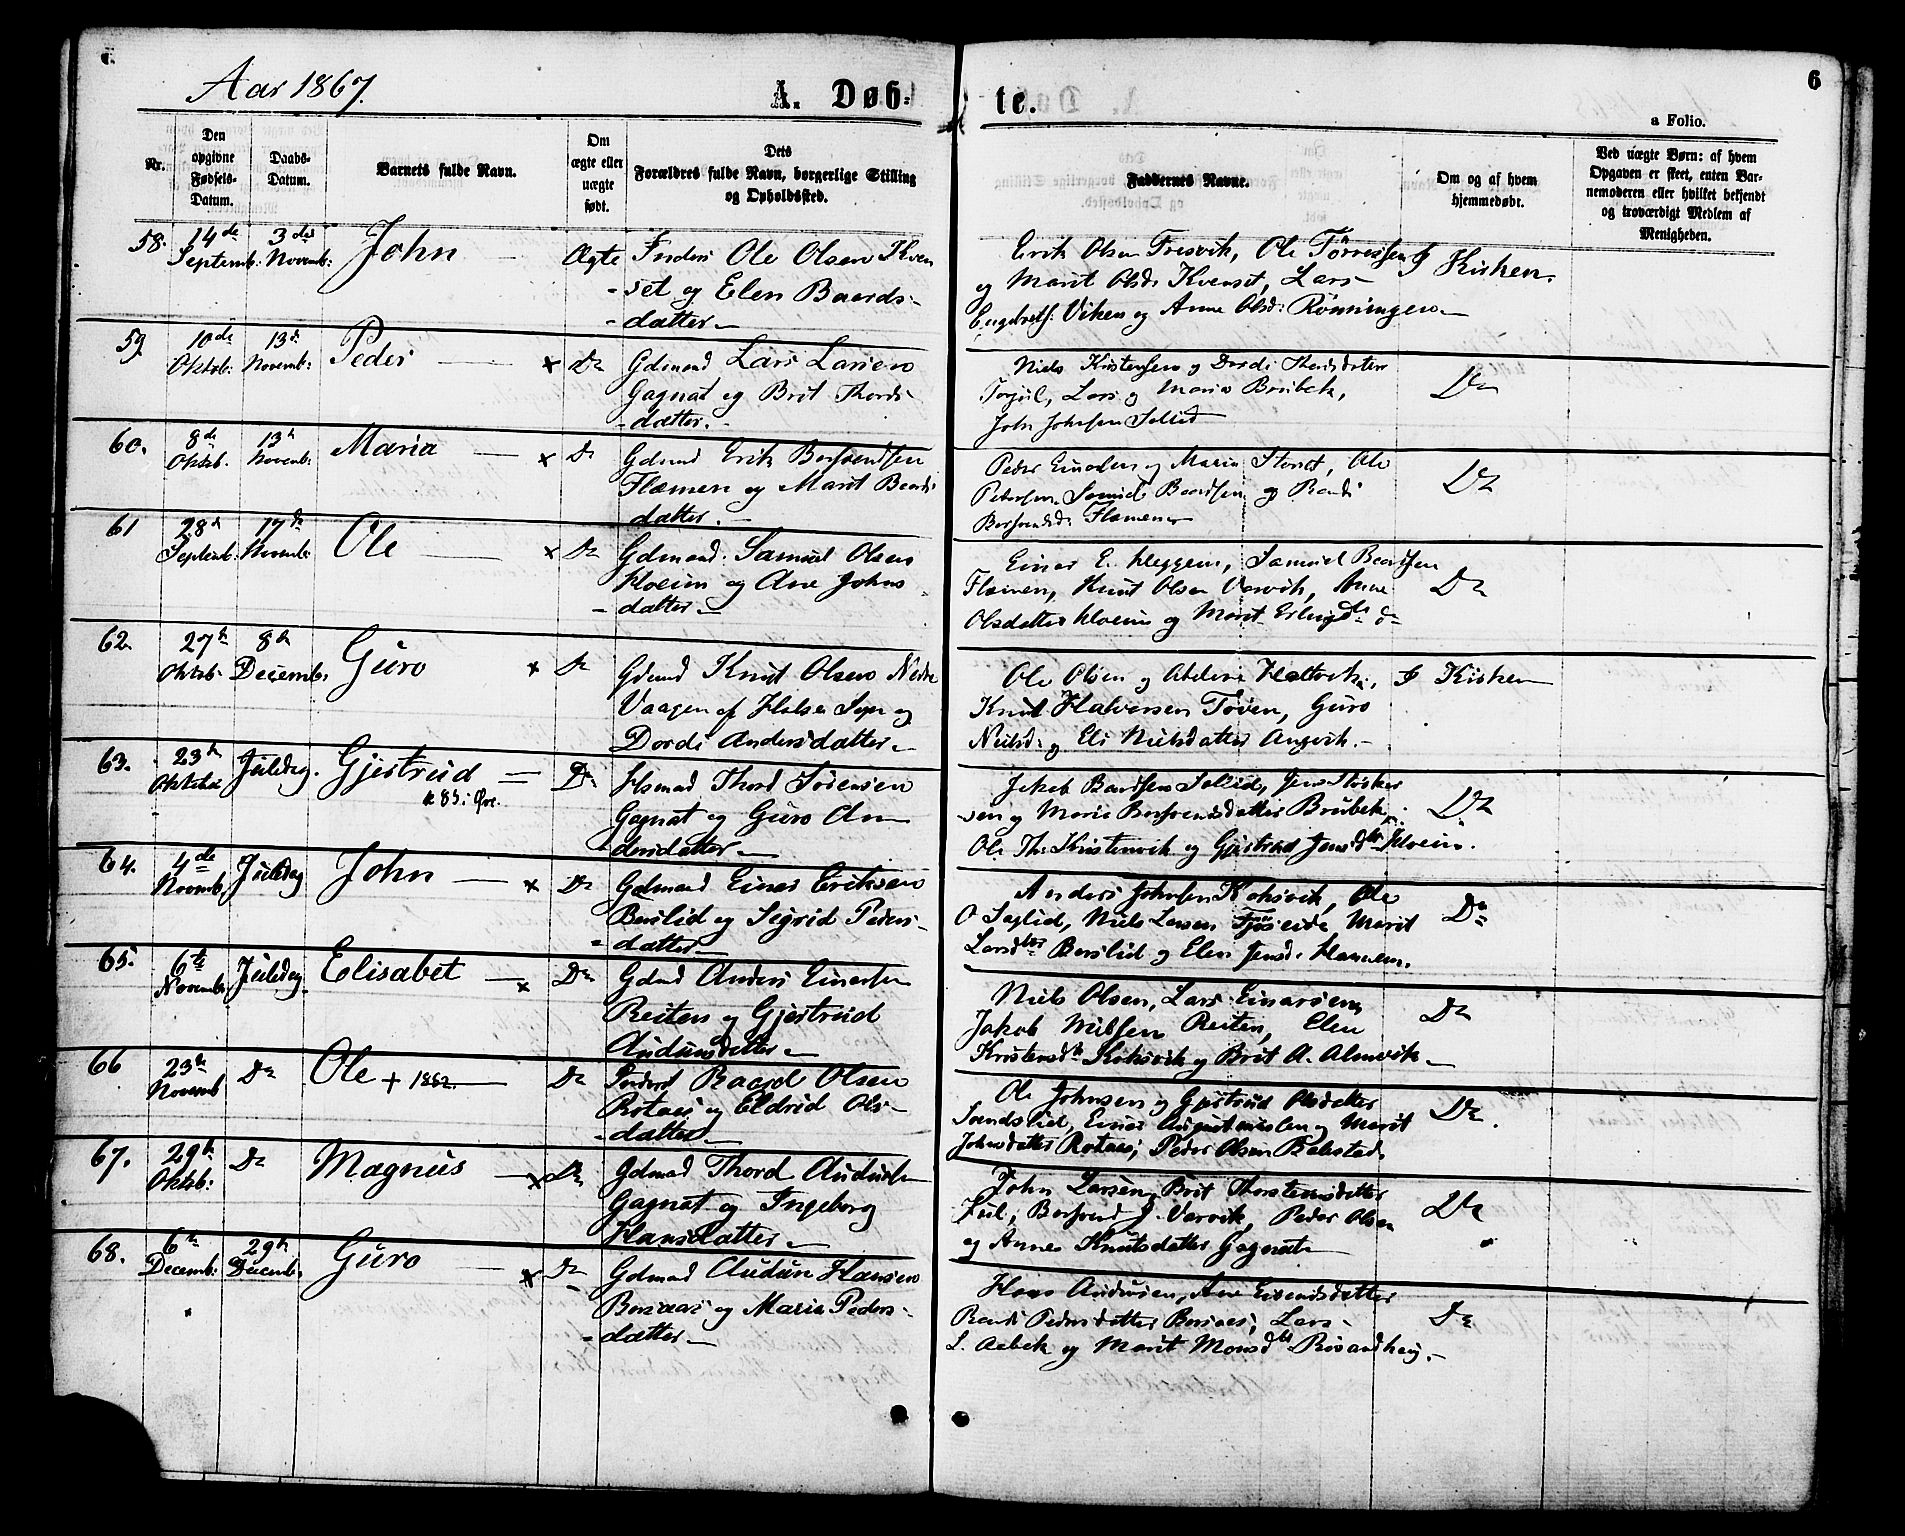 Aar 1867.
A. Døb-
te.
6
a Folio.
Nr.
Den
opgivne
Fødsels-
Datum.
Daabs-
Datum.
Barnets fulde Navn.
Om
ægte eller
uægte
født.
Dets
Forældres fulde Navn, borgerlige Stilling
og Opholdssted.
Faddernes Navne.
Om og af hvem
hjemmedøbt.
Ved uægte Børn: af hvem
Opgaven er skeet, enten Bar-
nemoderen eller hvilket bekjendt
og troværdigt Medlem af
Menigheden.
58.
14de
Septemb:
3die
Novemb:
John
Ægte
Inders Ole Olsen Kven
-set og Elen Baards-
-datter
Erik Olsen Fresvik, Ole Tørressen
og Marit Olsd: Kvenset, Lars
Viken og Anne Olsd: Rønningen
I Kirken.
59.
10de
Oktob:
13de
Novemb:
Peder
x
Do
Gdmand Lars Larsen
Gagnat og Brit Thords-
-datter.
Niels Kristensen og Dordi Thordsdatter
Torjul, Lars og Maria Brubek,
John Johnsen Sollid
Do
60.
8de
Oktob.
13de
Novemb:
Maria
x
Do
Gdmand Erik Bersvendsen
Flemen og Marit Baards
datter.
Peder Einarsen og Maria Storset, Ole
Petersen Samuel Baardsen og Randi
Bersvendsd: Flemen
Do
61
28de
Septemb:
17de
Novemb:
Ole
x
Do
Gdmand Samuel Olsen
Hoem og Ane Johns
-datter
Einar E. Heggem, Samuel Baardsen
Flemen, Knut Olsen Varvik, Anne
Olsdatter Hoem og Marit Erlingsdtr do
Do
62.
27de
Oktob.
8de
Decemb:
Guro
x
Do
Gdmand Knut Olsen Nedre
Vaagen af Halse Sogn og
Dordi Andersdatter
Ole Olsen og
Knut Halvorsen Tøven, Guro
Nielsd: og Eli Nielsdatter Angvik.
I Kirken
63.
23de
Oktober
Juledag.
Gjertrud
k 85 i Øre.
Do
Hsmand Thord Sørensen
Gagnat og Guro An
dersdatter
Jakob Baardsen Sollid, Jens
sen og Marie Bersvendsdatter Brubek,
Ole Th: Kristenvik og Gjertrud Jensdtr Hoem.
Do
64.
4de
Novemb.
Juledag
John
x
Do
Gdmand Einar Eriksen
Berslid og Sigrid Peders-
-datter
Anders Johnsen Koksvik, Ole
O Saglid, Niels Larsen Marit
Larsdtr Berslid og Elen Jensd:
Do
65.
6te
Novembr
Juledag
Elisabet
x
Do
Gdmd Anders Einarsen
Reiten og Gjertrud
Audunsdatter
Niels Olsen, Lars Einarsen
Jakob Nielsen Reiten, Elen
Kristensdtr Koksvik og Brit A. Almvik
Do
66
23de
Novemb
Do
Ole + 1882.
Do
Inders Baard Olsen
Rotaas og Eldrid Ols-
-datter
Ole Johnsen og Gjertrud Olsdatter
Sandslid, Einar Augustinussen og Marit
Johnsdatter Rotaas, Peder Olsen
Do
67.
29de
Oktob:
Do
Magnus
x
Do
Gdmand Thord Audunsen
Gagnat og Ingeborg
Hansdatter
John Larsen, Brit Thorstensdatter
Bersvend J. Varvik, Peder Olsen
og Anne Knutsdatter Gagnat
Do
68.
6te
Decemb:
29de
Decemb:
Guro
x
Do
Gdmand Audun Hansen
Bersaas og Marie Peders-
-datter
Hans Audunsen, Ane Eivendsdatter
Randi Pedersdatter Bersaas, Lars
L. Aabek og Marit Monsdtr Risandhaug.
Do